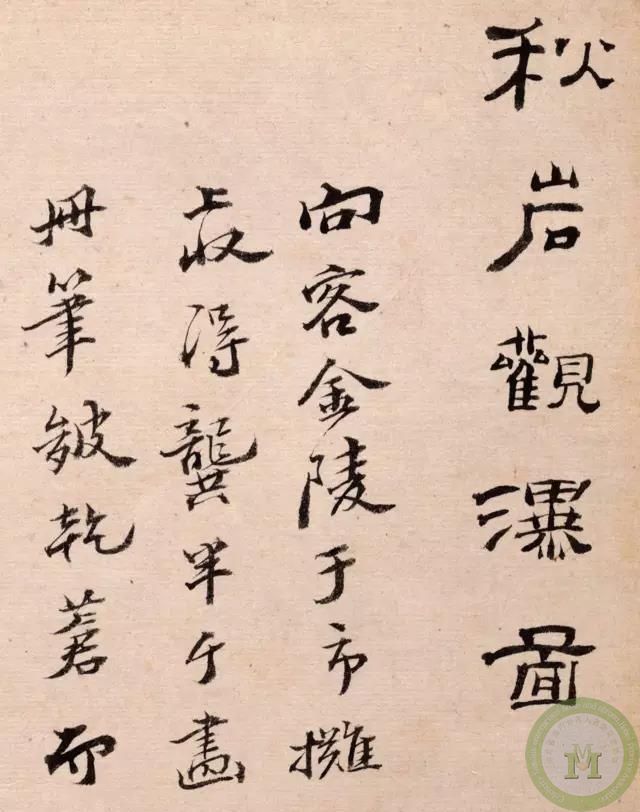 秋岩觀瀑圖
向客金陵于市攤
上收得龔半千畫
冊筆皴乾蒼而